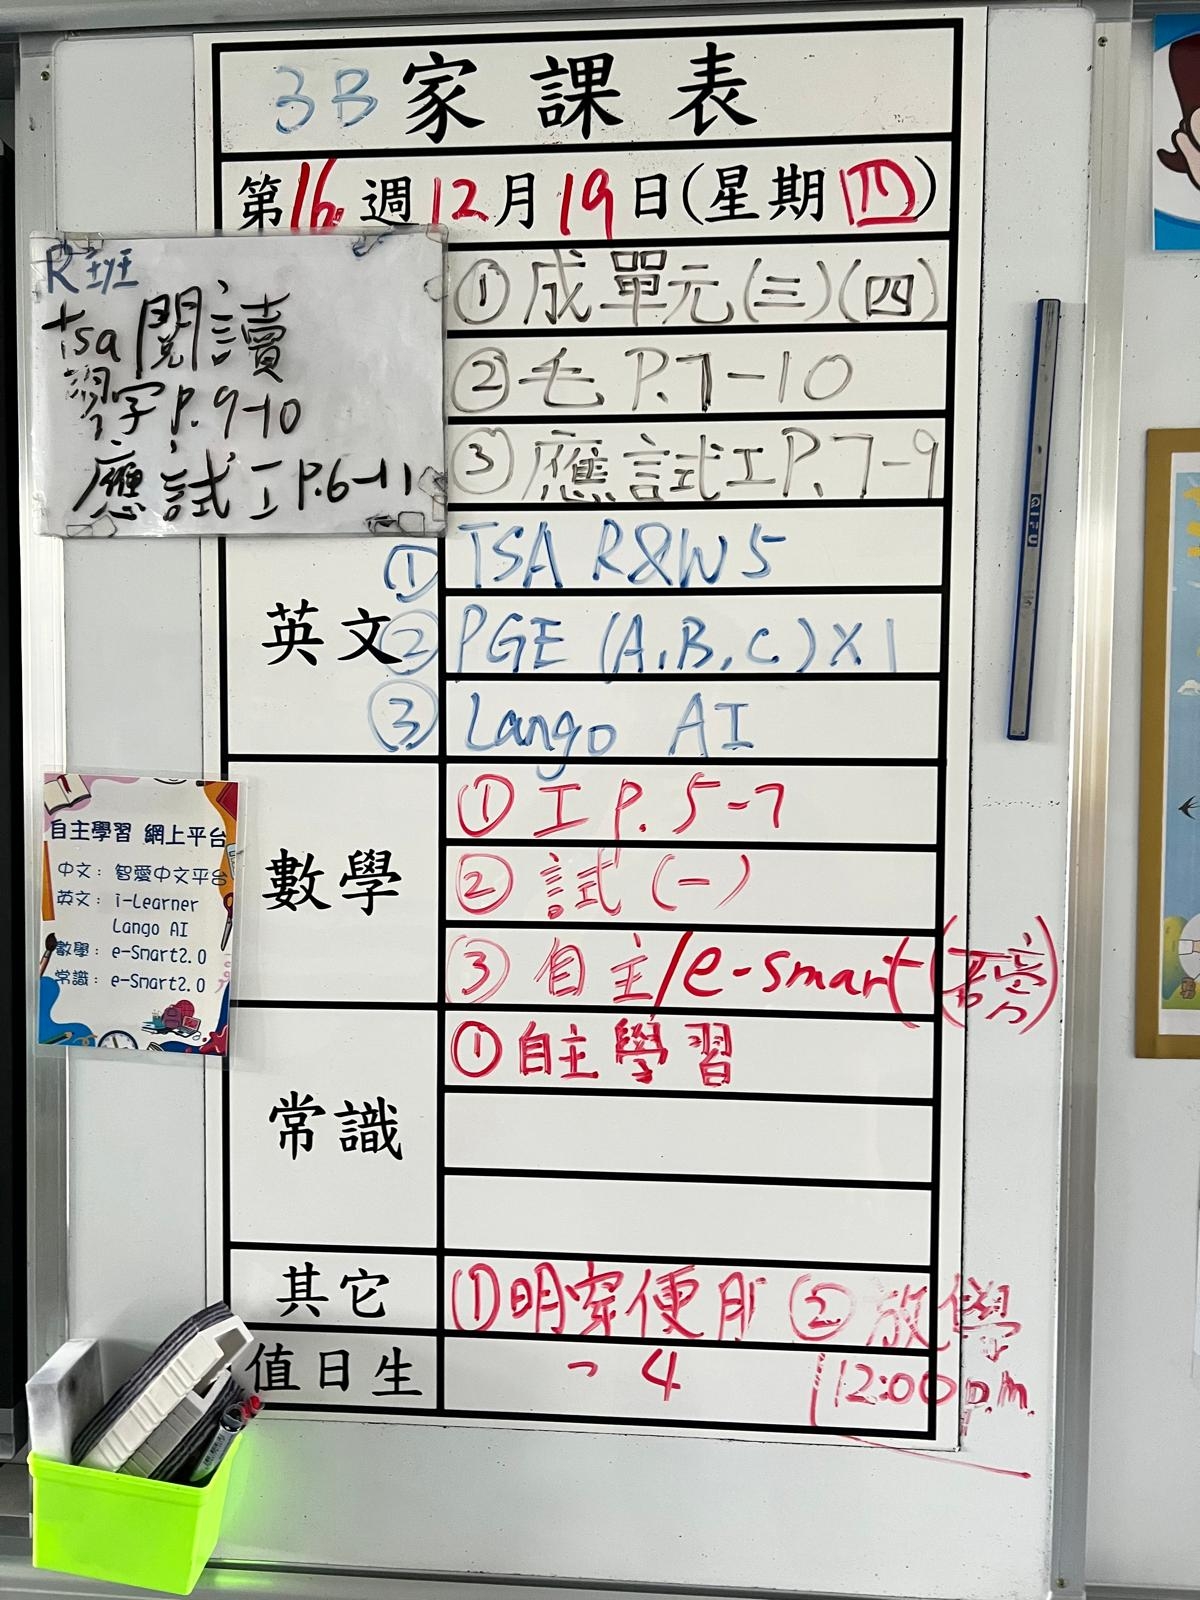 3B家課表
第16週12月19日(星期四)
R班
tsa閱讀
習字P.9-10
應試工P.6-11
①成單元(三)(四)
②毛P.7-10
③應試工P.7-9
英文
①TSA R&W5
②PGE (A,B,C)X1
③Lango AI
數學
①工P.5-7
②試(一)
③自主/e-smart
常識
①自主學習
其它
①明穿便服 ②放學
12:00p.m.
值日生
4
自主學習 網上平台
中文：智愛中文平台
英文：i-Learner
Lango AI
數學：e-Smart2.0
常識：e-Smart2.0